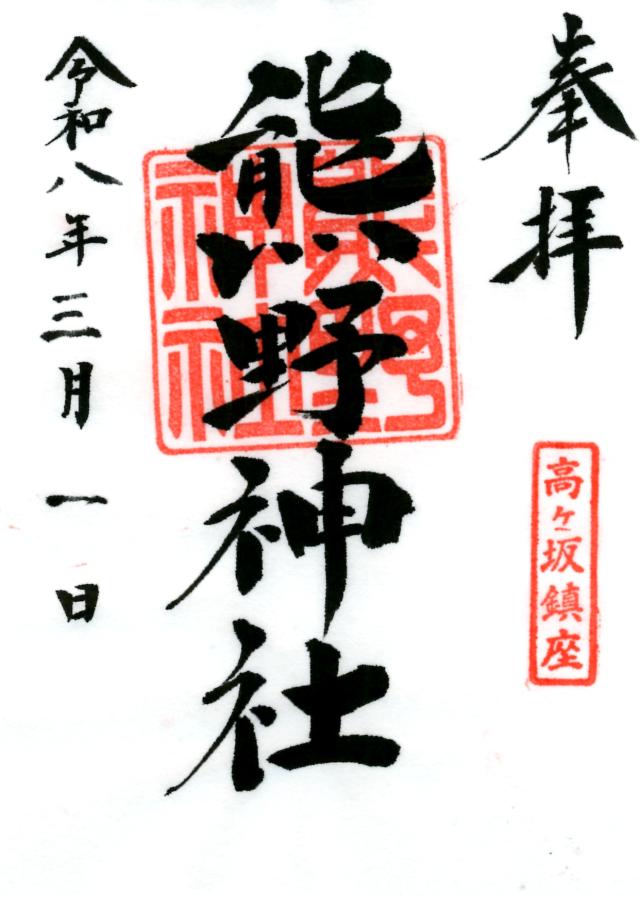 奉拝
高ヶ坂鎮座
熊野神社
熊野神社
令和八年三月一日